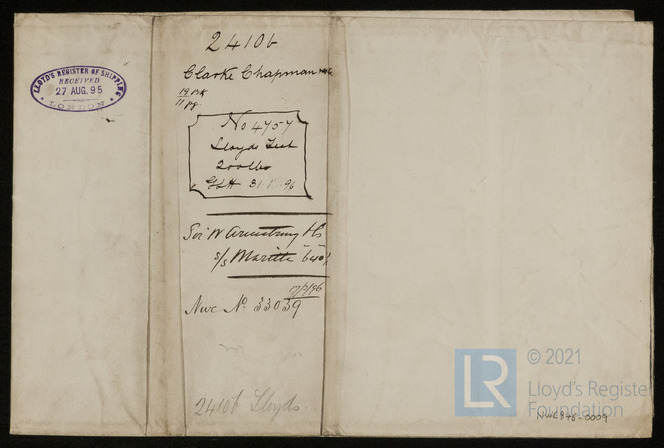 LLOYD'S REGISTER OF SHIPPING
RECEIVED
27 AUG. 95
LONDON
2410b
Clarke Chapman
No 4757
Lloyds Test
200 lbs
31 96
Sir W Armstrong
s/s
Nwc No 33039
2410b Lloyds.
© 2021
LR
Lloyd's Register
Foundation
NWC346-0009